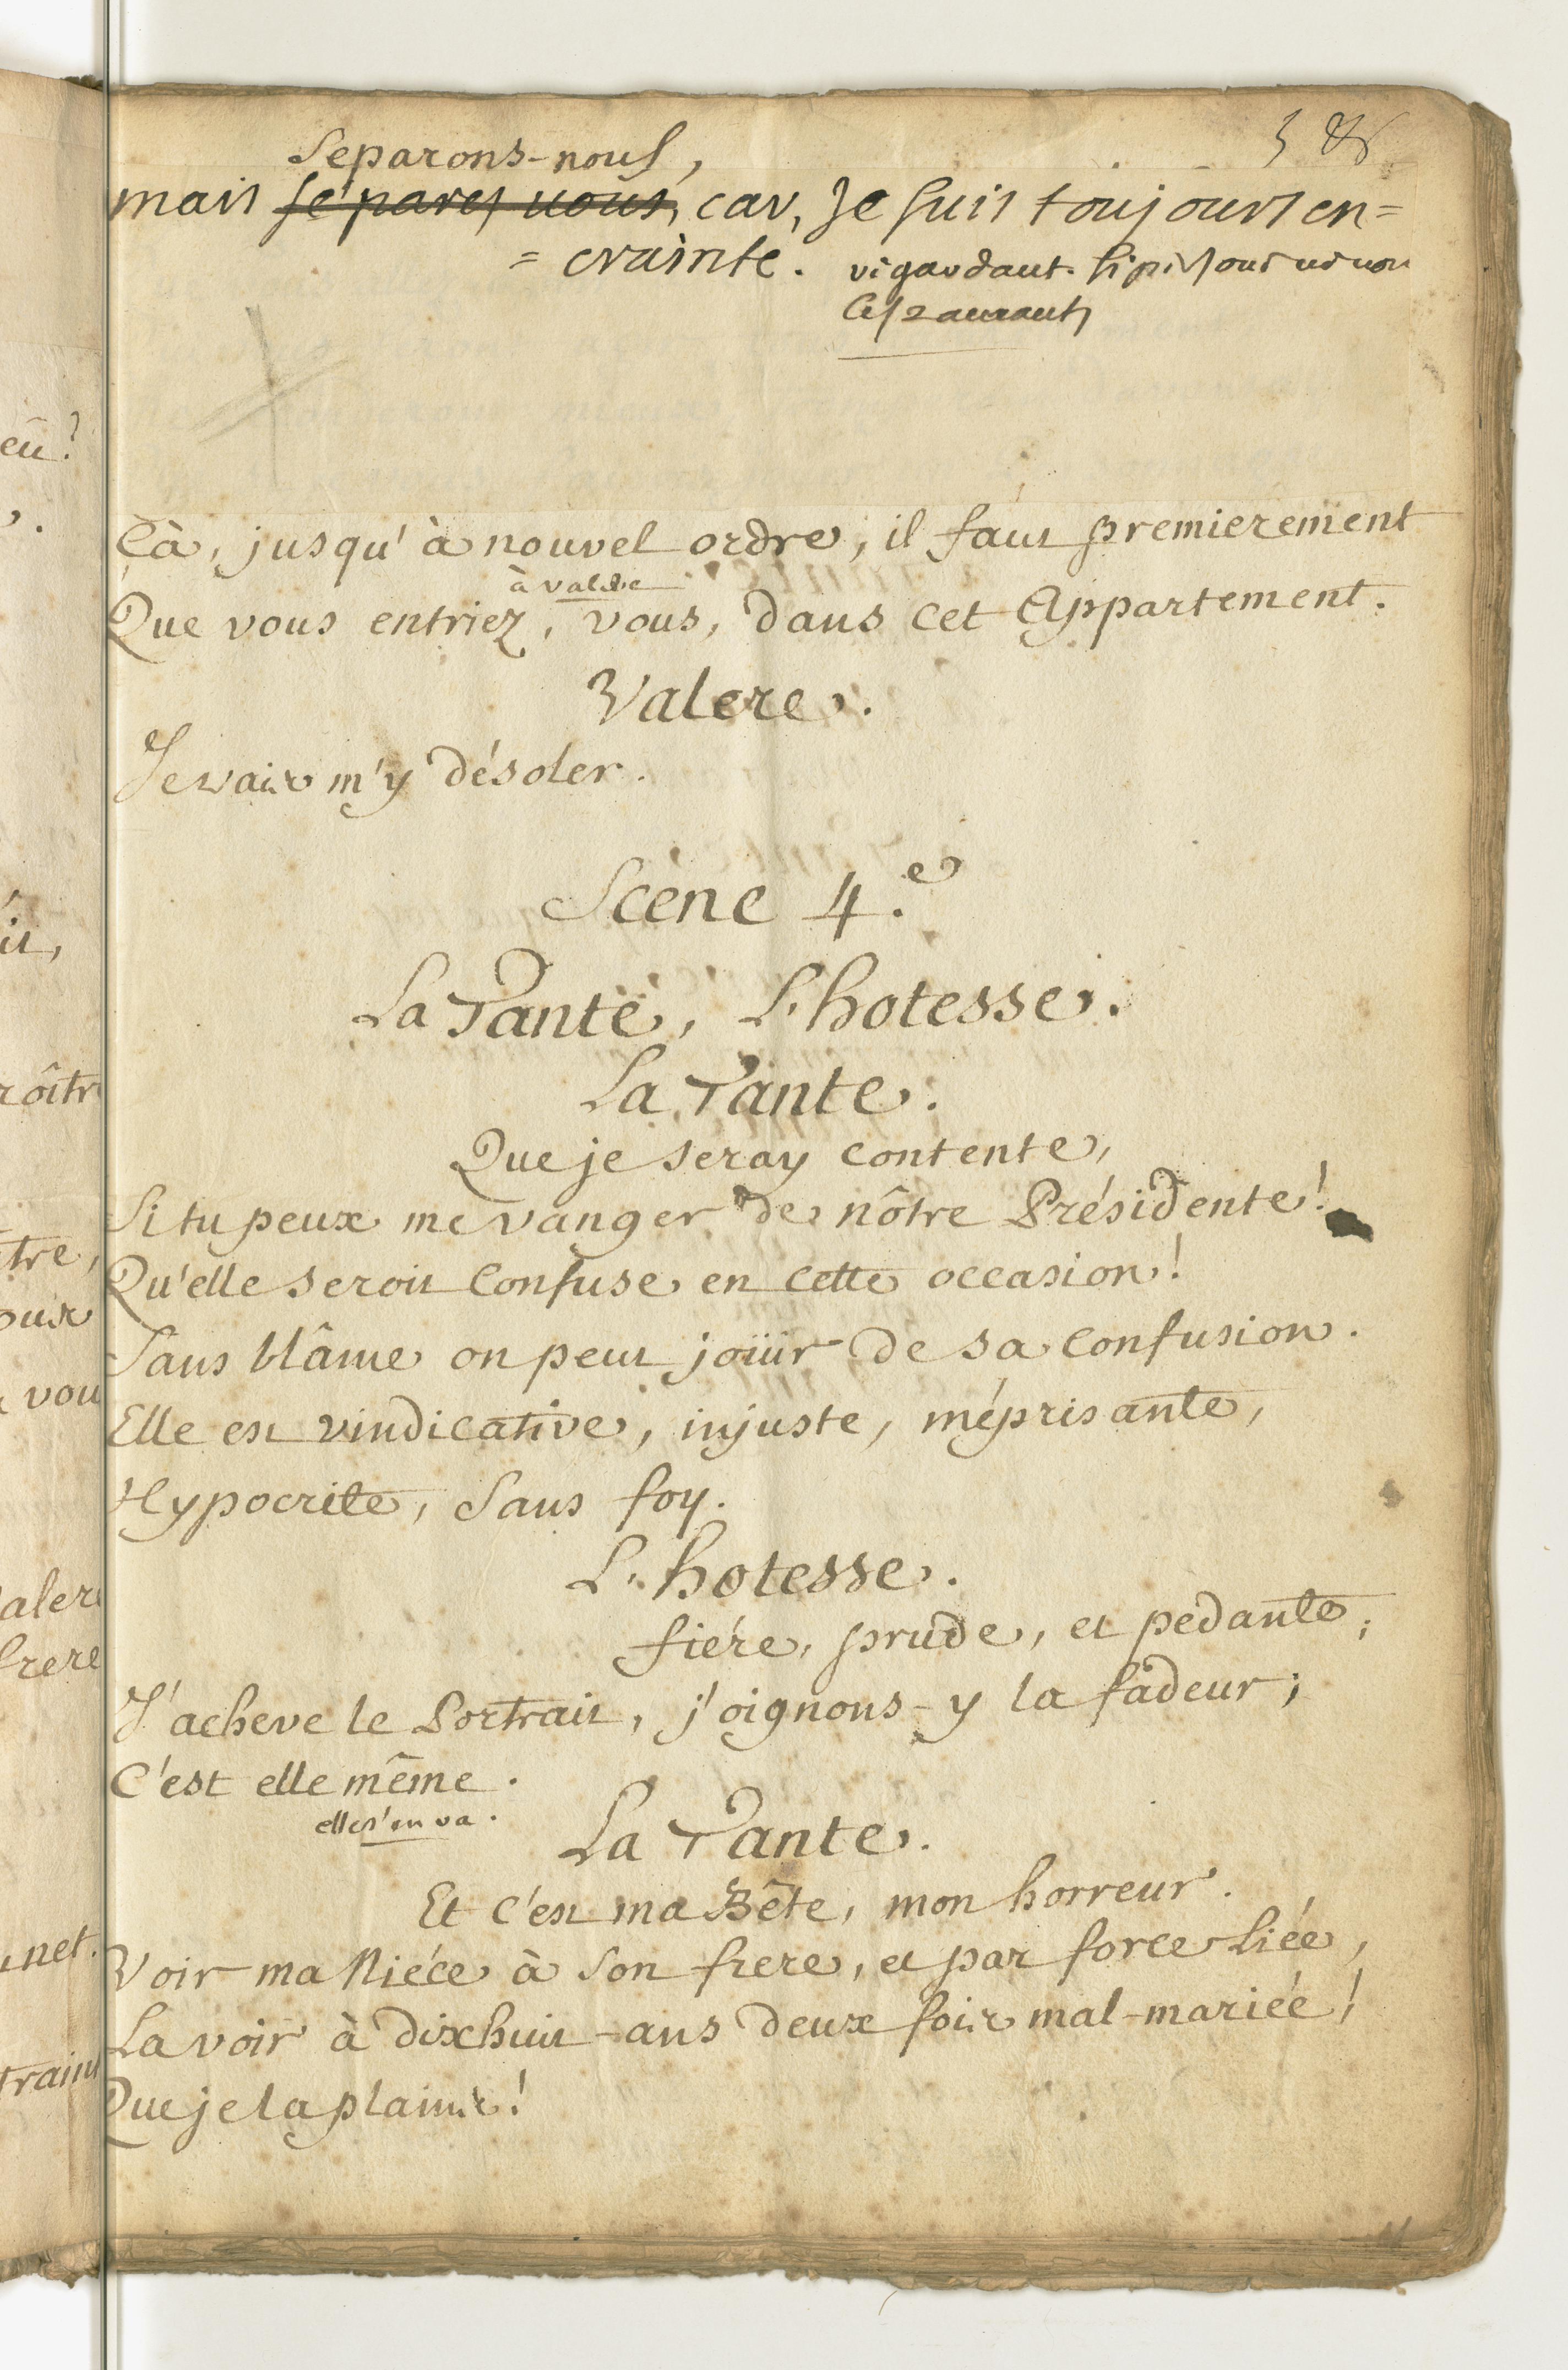 Separons-nous,
mais separez vous, car, Je suis toujours en=
= crainte. regardant si personne ne voit
les 2 amants
Cà, jusqu'à nouvel ordre, il faut premierement
à valere
Que vous entriez, vous, dans cet Appartement.
Valere.
Je vais m'y désoler.
Scene 4.e
La Tante, L'hotesse.
La Tante.
Que je seray contente,
Si tu peux me vanger de nôtre Présidente!
Qu'elle seroit confuse en cette occasion!
Sans blâme on peut joüir de sa confusion.
Elle est vindicative, injuste, méprisante,
Hypocrite, sans foy.
L'hotesse.
fiére, prude, et pedante;
J'acheve le Portrait, j'oignons-y la fadeur;
C'est elle même.
elle s'en va.
La Tante.
Et c'est ma Bête, mon horreur.
Voir ma Niéce à son frere, et par force liée,
La voir à dixhuit-ans deux fois mal-mariée!
Que je la plains!